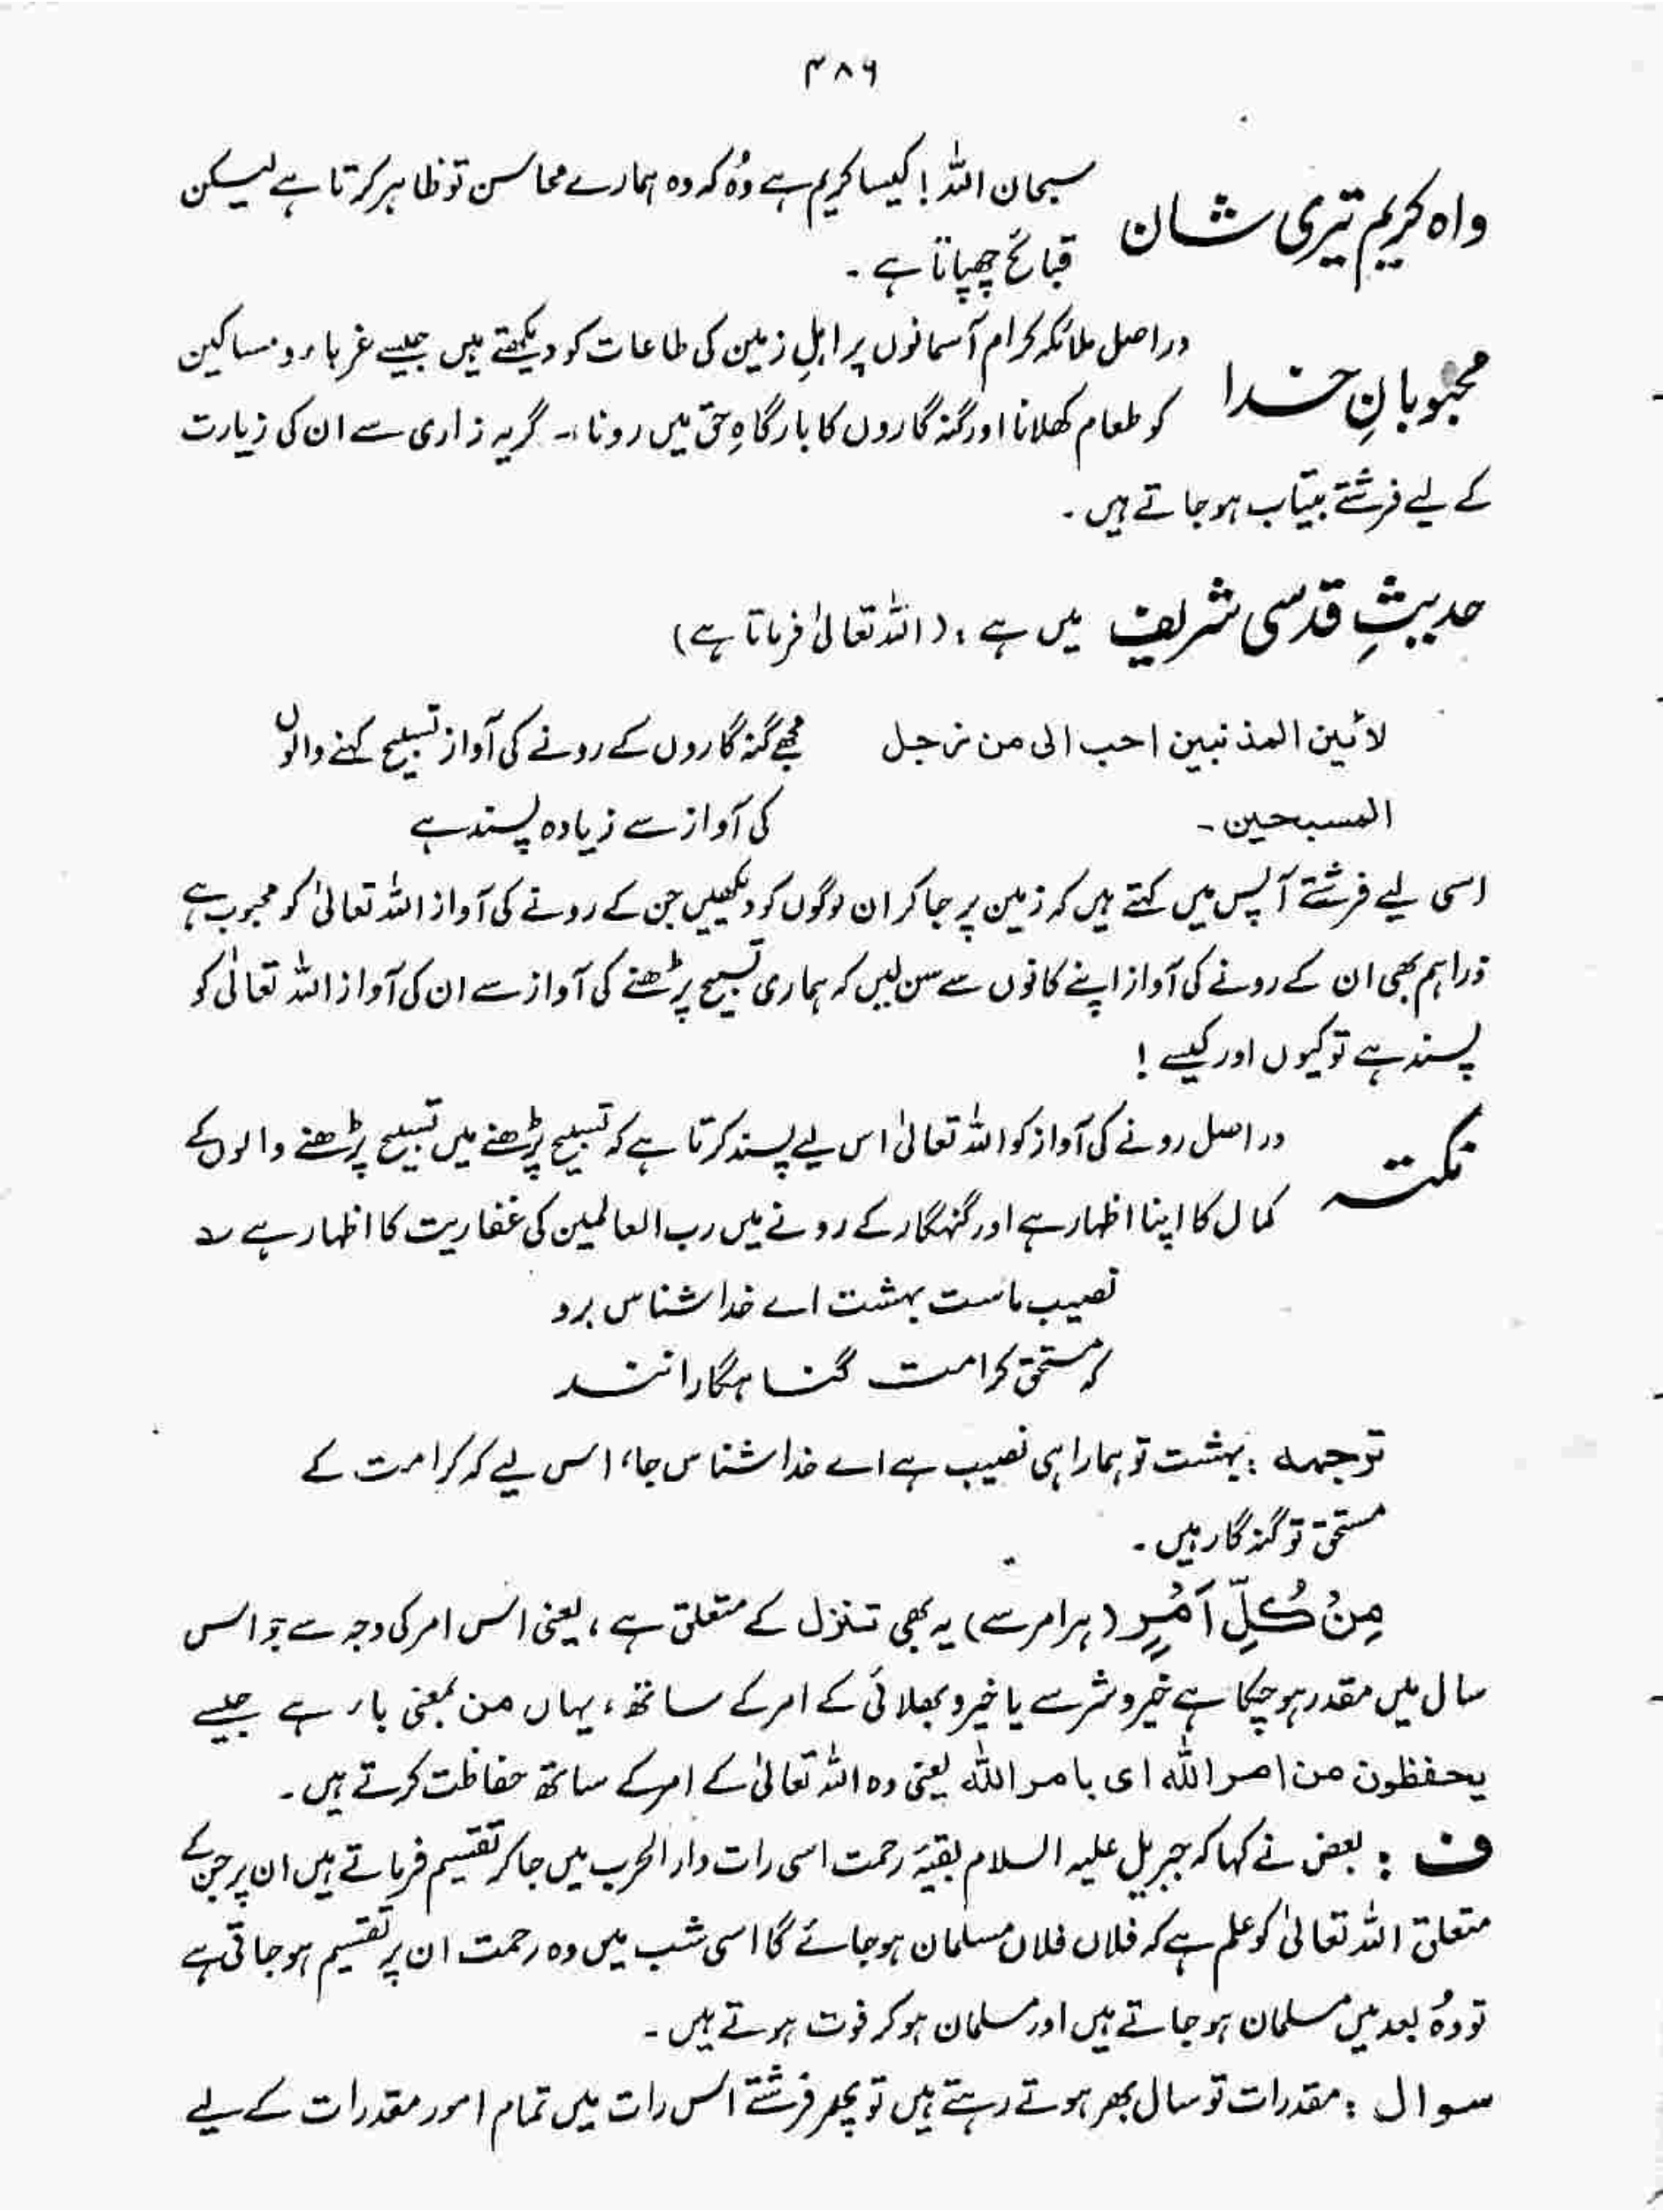 ۳۸۶
واہ کریم تیری شان
سبحان اللہ! کیسا کریم ہے وُہ کہ وہ ہمارے محاسن تو ظاہر کرتا ہے لیکن
قبائح چھپاتا ہے ۔
محبوبانِ خدا
دراصل ملائکہ کرام آسمانوں پر اہلِ زمین کی طاعات کو دیکھتے ہیں جیسے غرباء و مساکین
کو طعام کھلانا اور گنہ گاروں کا بارگاہِ حق میں رونا ۔ گریہ زاری سے ان کی زیارت
کے لیے فرشتے بیتاب ہو جاتے ہیں ۔
حدیثِ قدسی شریف میں ہے : (اللہ تعالیٰ فرماتا ہے)
لائین المذنبین احب الی من زجل
المسبحین ۔
مجھے گنہ گاروں کے رونے کی آواز تسبیح کہنے والوں
کی آواز سے زیادہ پسند ہے
اسی لیے فرشتے آپس میں کہتے ہیں کہ زمین پر جا کر ان لوگوں کو دیکھیں جن کے رونے کی آواز اللہ تعالیٰ کو محبوب ہے
ذرا ہم بھی ان کے رونے کی آواز اپنے کانوں سے سن لیں کہ ہماری تسبیح پڑھنے کی آواز سے ان کی آواز اللہ تعالیٰ کو
پسند ہے تو کیوں اور کیسے !
نکتہ
دراصل رونے کی آواز کو اللہ تعالیٰ اس لیے پسند کرتا ہے کہ تسبیح پڑھنے میں تسبیح پڑھنے والوں کے
کمال کا اپنا اظہار ہے اور گنہگار کے رونے میں رب العالمین کی غفاریت کا اظہار ہے ؎
نصیب ماست بہشت اے خدا شناس برو
کہ مستحق کرامت گناہگارانند
ترجمہ : بہشت تو ہمارا ہی نصیب ہے اے خدا شناس جا، اس لیے کہ کرامت کے
مستحق تو گنہ گار ہیں ۔
مِنْ كُلِّ اَمْرٍ (ہر امر سے) یہ بھی تنزل کے متعلق ہے ، یعنی اس امر کی وجہ سے جو اس
سال میں مقدر ہو چکا ہے خیر و شر سے یا خیر و بھلائی کے امر کے ساتھ ، یہاں من بمعنی باء ہے جیسے
یحفظون من امر اللہ ای بامر اللہ یعنی وہ اللہ تعالیٰ کے امر کے ساتھ حفاظت کرتے ہیں ۔
ف : بعض نے کہا کہ جبریل علیہ السلام بقیۂ رحمت اسی رات دار الحرب میں جا کر تقسیم فرماتے ہیں ان پر جن کے
متعلق اللہ تعالیٰ کو علم ہے کہ فلاں فلاں مسلمان ہو جائے گا اسی شب میں وہ رحمت ان پر تقسیم ہو جاتی ہے
تو وُہ بعد میں مسلمان ہو جاتے ہیں اور مسلمان ہو کر فوت ہوتے ہیں ۔
سوال : مقدرات تو سال بھر ہوتے رہتے ہیں تو پھر فرشتے اس رات میں تمام امور مقدرات کے لیے